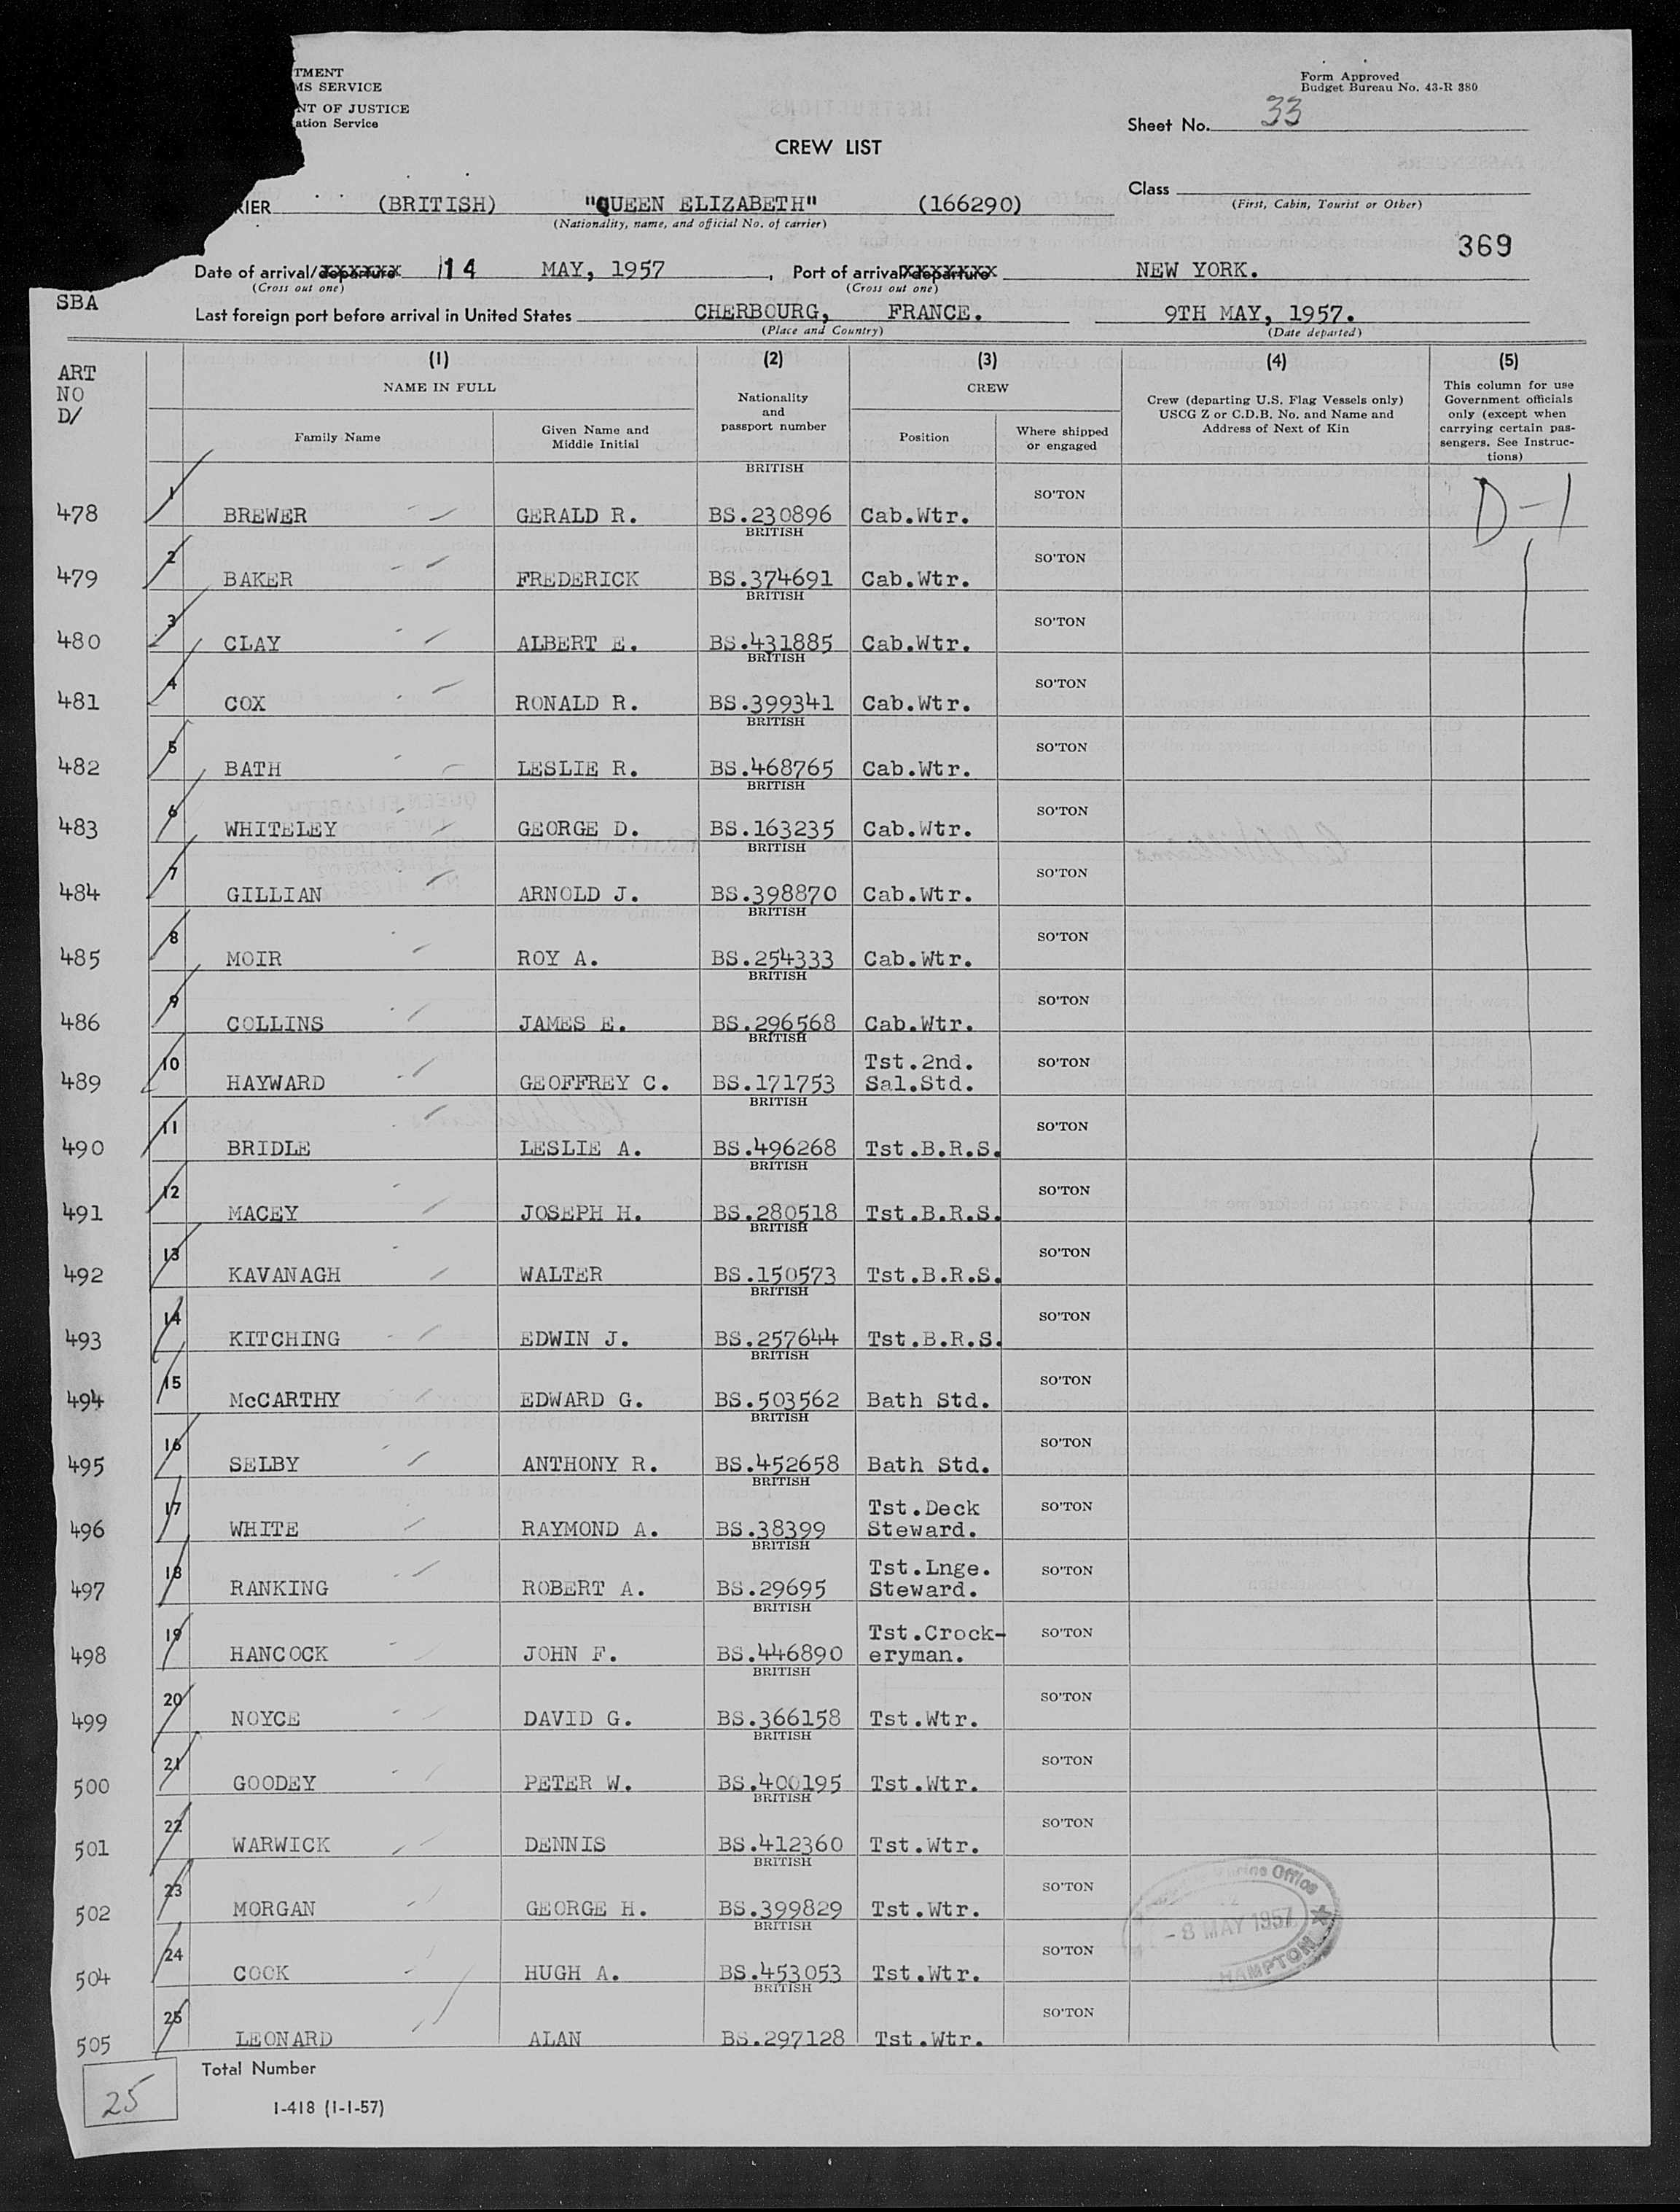 TMENT
MS SERVICE
NT OF JUSTICE
ation Service
Form Approved
Budget Bureau No. 43-R 380
Sheet No. 33
CREW LIST
Class
(First, Cabin, Tourist or Other)
RIER (BRITISH) "QUEEN ELIZABETH" (166290)
(Nationality, name, and official No. of carrier)
369
Date of arrival/departure 14 MAY, 1957, Port of arrival/departure NEW YORK.
(Cross out one) (Cross out one)
SBA
Last foreign port before arrival in United States CHERBOURG, FRANCE. 9TH MAY, 1957.
(Place and Country) (Date departed)
ART
NO
D/
(1) (2) (3) (4) (5)
NAME IN FULL
Nationality
and
passport number
CREW
Crew (departing U.S. Flag Vessels only)
USCG Z or C.D.B. No. and Name and
Address of Next of Kin
This column for use
Government officials
only (except when
carrying certain pas-
sengers. See Instruc-
tions)
Family Name
Given Name and
Middle Initial
Position
Where shipped
or engaged
BRITISH
478 1 BREWER GERALD R. BS.230896 Cab.Wtr. SO'TON D-1
BRITISH
479 2 BAKER FREDERICK BS.374691 Cab.Wtr. SO'TON
BRITISH
480 3 CLAY ALBERT E. BS.431885 Cab.Wtr. SO'TON
BRITISH
481 4 COX RONALD R. BS.399341 Cab.Wtr. SO'TON
BRITISH
482 5 BATH LESLIE R. BS.468765 Cab.Wtr. SO'TON
BRITISH
483 6 WHITELEY GEORGE D. BS.163235 Cab.Wtr. SO'TON
BRITISH
484 7 GILLIAN ARNOLD J. BS.398870 Cab.Wtr. SO'TON
BRITISH
485 8 MOIR ROY A. BS.254333 Cab.Wtr. SO'TON
BRITISH
486 9 COLLINS JAMES E. BS.296568 Cab.Wtr. SO'TON
BRITISH
Tst.2nd.
489 10 HAYWARD GEOFFREY C. BS.171753 Sal.Std. SO'TON
BRITISH
490 11 BRIDLE LESLIE A. BS.496268 Tst.B.R.S. SO'TON
BRITISH
491 12 MACEY JOSEPH H. BS.280518 Tst.B.R.S. SO'TON
BRITISH
492 13 KAVANAGH WALTER BS.150573 Tst.B.R.S. SO'TON
BRITISH
493 14 KITCHING EDWIN J. BS.257644 Tst.B.R.S. SO'TON
BRITISH
494 15 McCARTHY EDWARD G. BS.503562 Bath Std. SO'TON
BRITISH
495 16 SELBY ANTHONY R. BS.452658 Bath Std. SO'TON
BRITISH
Tst.Deck
496 17 WHITE RAYMOND A. BS.38399 Steward. SO'TON
BRITISH
Tst.Lnge.
497 18 RANKING ROBERT A. BS.29695 Steward. SO'TON
BRITISH
Tst.Crock-
498 19 HANCOCK JOHN F. BS.446890 eryman. SO'TON
BRITISH
499 20 NOYCE DAVID G. BS.366158 Tst.Wtr. SO'TON
BRITISH
500 21 GOODEY PETER W. BS.400195 Tst.Wtr. SO'TON
BRITISH
501 22 WARWICK DENNIS BS.412360 Tst.Wtr. SO'TON
BRITISH
502 23 MORGAN GEORGE H. BS.399829 Tst.Wtr. SO'TON
BRITISH
504 24 COOK HUGH A. BS.453053 Tst.Wtr. SO'TON
BRITISH
505 25 LEONARD ALAN BS.297128 Tst.Wtr. SO'TON
Office
- 8 MAY 1957
HAMPTON
Total Number
25
I-418 (1-1-57)